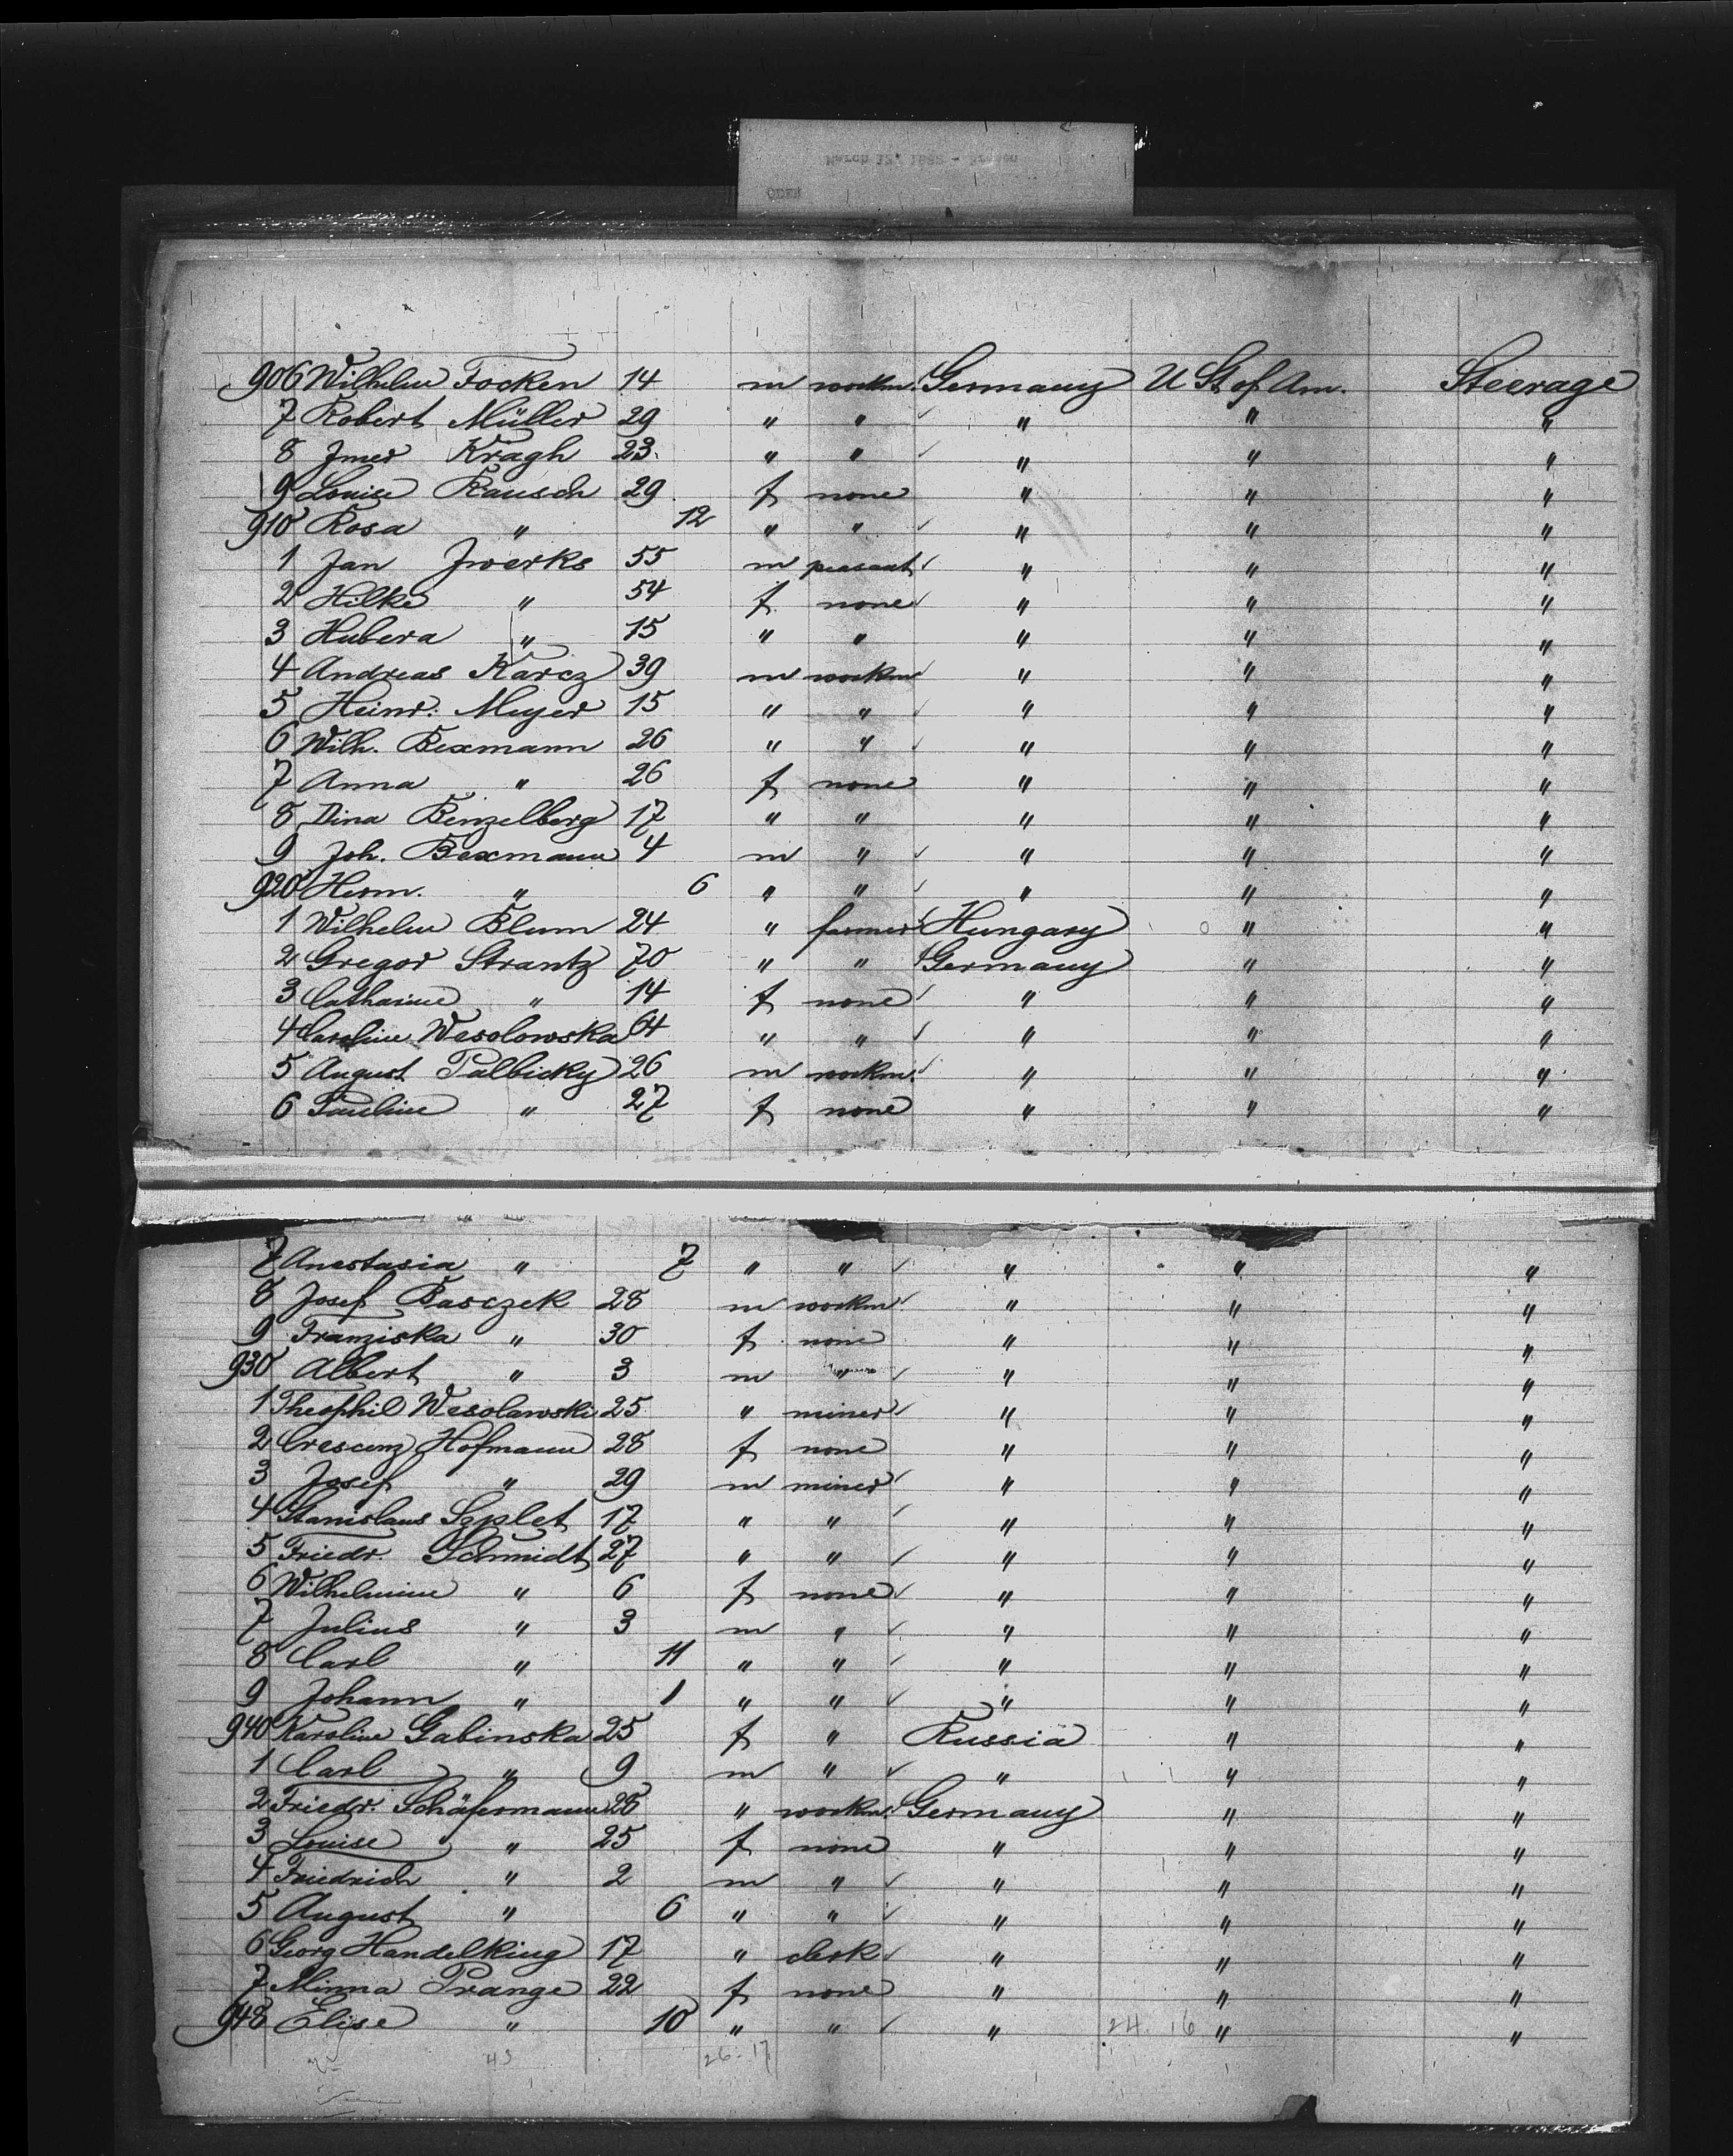 906 Wilhelm Focken 14 m workm. Germany U St of Am. Steerage
7 Robert Müller 29 " " " " "
8 Jmer Kragh 23 " " " " "
9 Louise Rausch 29 f none " " "
910 Rosa " 12 " " " " "
1 Jan Jwerks 55 m peasant " " "
2 Hilke " 54 f none " " "
3 Hubera " 15 " " " " "
4 Andreas Karcz 39 m workm " " "
5 Heinr. Meyer 15 " " " " "
6 Wilh. Bexmann 26 " " " " "
7 Anna " 26 f none " " "
8 Dina Benzelberg 17 " " " " "
9 Joh. Bexmann 4 m " " " "
920 Herm. " 6 " " " " "
1 Wilhelm Blum 24 " farmer Hungary " "
2 Gregor Strantz 70 " " Germany " "
3 Catharine " 14 f none " " "
4 Caroline Wesolowska 64 " " " " "
5 August Palbicky 26 m workm. " " "
6 Pauline " 27 f none " " "
7 Anastasia " 7 " " " " "
8 Josef Basczek 28 m workm " " "
9 Franziska " 30 f none " " "
930 Albert " 3 m " " " "
1 Theophil Wesolawski 25 " miner " " "
2 Crescenz Hofmann 28 f none " " "
3 Josef " 29 m miner " " "
4 Stanislaus Szplet 17 " " " " "
5 Friedr. Schmidt 27 " " " " "
6 Wilhelmine " 6 f none " " "
7 Julius " 3 m " " " "
8 Carl " 11 " " " " "
9 Johann " 1 " " " " "
940 Karoline Gabinska 25 f " Russia " "
1 Carl " 9 m " " " "
2 Friedr. Schäfermann 28 " workm. Germany " "
3 Louise " 25 f none " " "
4 Friedrich " 2 m " " " "
5 August " 6 " " " " "
6 Georg Handelking 17 " clerk " " "
7 Minna Prange 22 f none " " "
948 Elise " 10 " " " 24. 16 " "
43 26-17